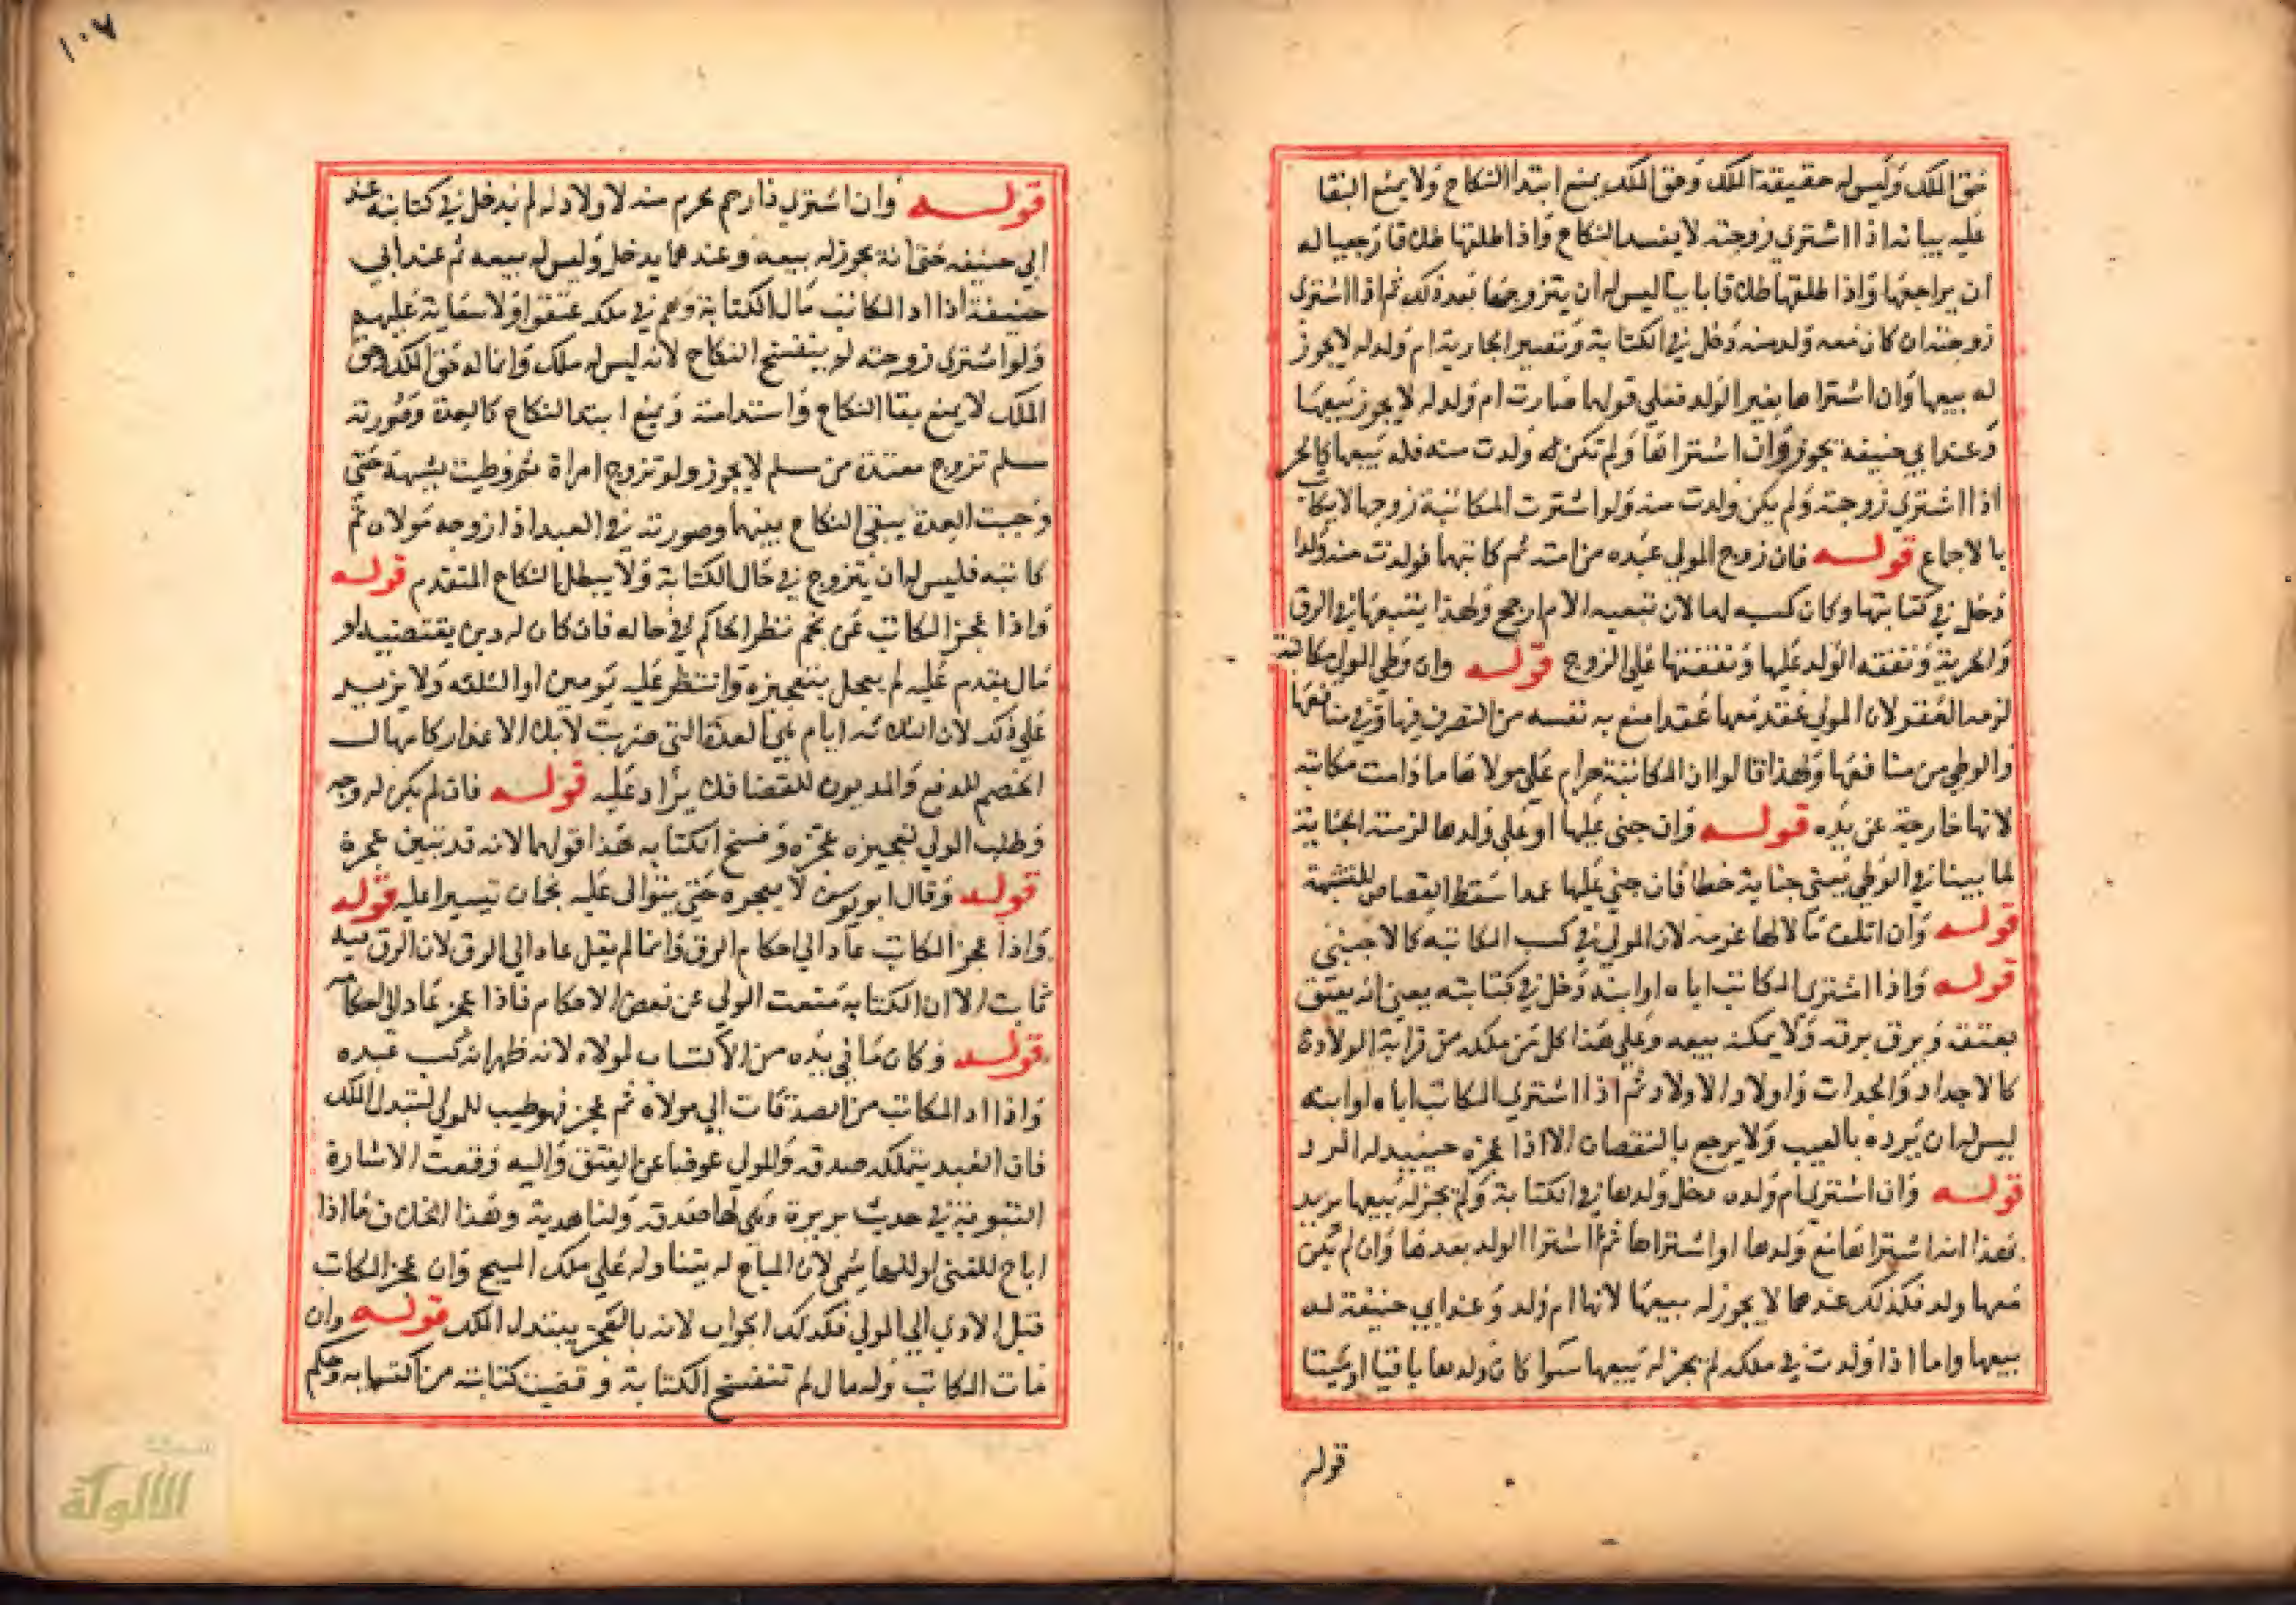 حق الملك وليس له حقيقة الملك وحق الملك يمنع ابتدا النكاح ولا يمنع البقا
عليه بيانه اذا اشتري زوجته لا يفسد النكاح واذا طلقها طلاقا رجعيا له
ان يراجعها واذا طلقها طلاقا باينا ليس له ان يتزوجها بعد ذلك ثم اذا اشترى
زوجته ان كان معه ولد منه دخل في الكتابة وتصير الجارية ام ولد له لا يجوز
له بيعها وان اشتراها بغير الولد فعلي قولهما صارت ام ولد له لا يجوز بيعها
وعند ابي حنيفة يجوز وان اشتراها ولم تكن ولدت منه فله بيعها كالحر
اذا اشتري زوجته ولم يكن ولدت منه ولو اشترت المكاتبة زوجها
بالاجماع قوله فان زوج المولي عبده من امته ثم كاتبهما فولدت منه ولدا
دخل في كتابتها وكان كسبه لها لان تبعيه الام ارجح ولهذا يتبعها في الرق
والحرية ونفقته الولد عليها ونفقتها علي الزوج قوله وان وطي المولي مكاتبته
لزمه العقر لان المولي عقد معها عقدا منع به نفسه من التصرف فيها وفي منافعها
والوطي من منافعها ولهذا قالوا ان المكاتبة حرام علي مولاها ما دامت مكاتبه
لانها خارجة عن يده قوله وان جني عليها او علي ولدها لزمته الجناية
لما بينا في الوطي يعني جناية خطا فان جني عليها عمدا سقط القصاص للشبهة
قوله وان اتلف مالا لها غرمه لان المولي في كسب المكاتبه كالاجنبي
قوله واذا اشتري المكاتب اباه او ابنه دخل في كتابته يعني انه يعتق
بعتقه ويرق برقه ولا يمكنه بيعه وعلي هذا كل من ملكه من قرابة الولادة
كالاجداد والجدات واولاد الاولاد ثم اذا اشتري المكاتب اباه او ابنه
ليس له ان يرده بالعيب ولا يرجع بالنقصان الا اذا عجز حينيد له الرد
قوله وان اشتري ام ولده دخل ولدها في الكتابة ولم يجز له بيعها يريد
بهذا انه اشتراها مع ولدها او اشتراها ثم اشترا الولد بعدها وان لم يكن
معها ولد فكذلك عندهما لا يجوز له بيعها لانها ام ولد وعند ابي حنيفة له
بيعها واما اذا ولدت في ملكه لم يجز له بيعها سوا كان ولدها باقيا او ميتا
قوله
١٠٧
قوله وان اشتري ذا رحم محرم منه لا ولاد له لم يدخل في كتابته عند
ابي حنيفه حتي انه يجوز له بيعه وعندهما يدخل وليس له بيعه ثم عند ابي
حنيفة اذا ادا المكاتب مال الكتابة وهم في ملكه عتقوا ولا سعاية عليهم
ولو اشترى زوجته لم ينفسخ النكاح لانه ليس له ملك وانما له حق الملك وحق
الملك لا يمنع بقا النكاح واستدامته ويمنع ابتدا النكاح كالعدة وصورته
مسلم تزوج معتدة من مسلم لا يجوز ولو تزوج امراة ثم وطيت بشبهة حتي
وجبت العدة يبقي النكاح بينهما وصورته في العبد اذا زوجه مولاه ثم
كاتبه فليس له ان يتزوج في حال الكتابة ولا يبطل النكاح المتقدم قوله
واذا عجز المكاتب عن نجم نظر الحاكم في حاله فان كان له دين يقتضيه او
مال يقدم عليه لم يعجل بتعجيزه وانتظر عليه يومين او الثلثه ولا يزيد
علي ذلك لان الثلاثه ايام هي العدة التي ضربت لابلاء الاعذار كامهال
الخصم للدفع والمديون للقضا فلا يزاد عليه قوله فان لم يكن له وجه
وطلب المولي تعجيزه عجزه وفسخ الكتابه هذا قولهما لانه قد تبين عجزة
قوله وقال ابو يوسف لا يعجزه حتي يتوالى عليه نجمان تيسيرا عليه قوله
واذا عجز المكاتب عاد الي احكام الرق وانما لم يقل عاد الي الرق لان الرق فيه
ثابت الا ان الكتابة منعت المولي عن بعض الاحكام فاذا عجز عاد الي احكام
قوله وكان ما في يده من الاكتساب لمولاه لانه ظهر انه كسب عبده
واذا ادا المكاتب من الصدقات الي مولاه ثم عجز فهو طيب للمولي لتبدل الملك
فان العبد يتملكه صدقه والمولي عوضا عن العتق واليه وقعت الاشارة
النبوية في حديث بريرة وهي لها صدقه ولنا هدية وهذا الخلاف ما اذا
اباح للغني او للهاشمي لان المباح له يتناوله علي ملك المبيح وان عجز المكاتب
قبل الادا الي المولي فكذلك الجواب لانه بالعجز يتبدل الملك قوله وان
مات المكاتب وله مال لم تنفسخ الكتابة وقضيت كتابته من اكتسابه وحكم
الألوكة